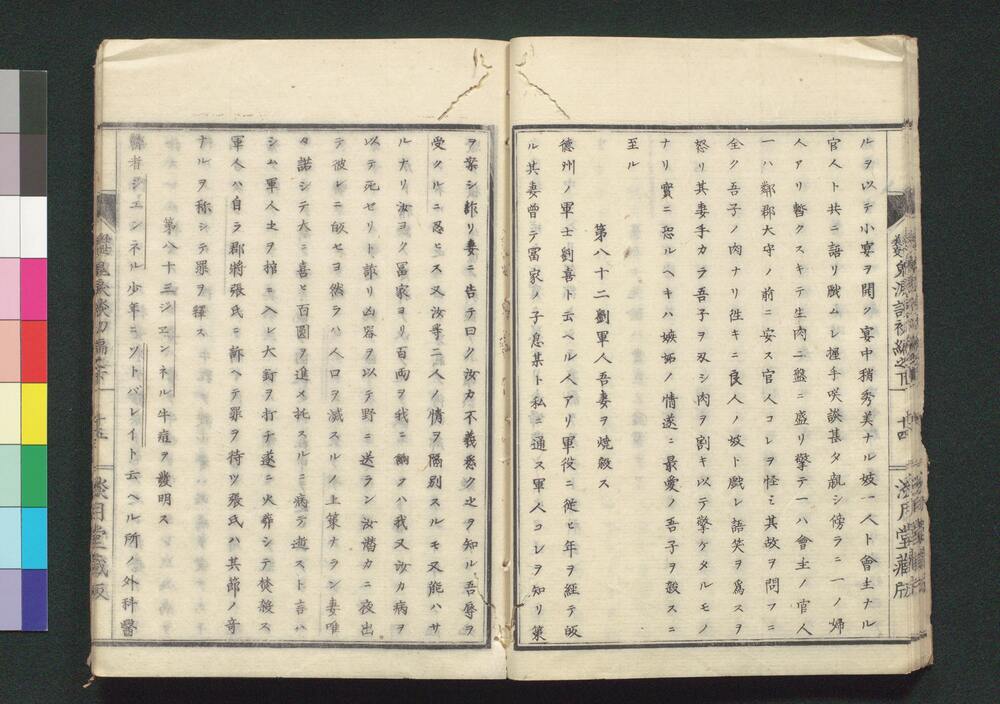 ルヲ以テ小宴ヲ開ク宴中稍秀美ナル妓一人ト會主ナル
官人ト共ニ語リ戯ムレ握手咲談甚タ亂シ傍ラニ一ノ婦
人アリ暫クスキテ生肉二盤ニ盛リ擎テ一ハ會主ノ官人
一ハ鄰郡大守ノ前ニ安ス官人コレヲ怪ミ其故ヲ問フニ
全ク吾子ノ肉ナリ徃キニ良人ノ妓ト戯レ語笑ヲ爲スヲ
怒リ其妻手カラ吾子ヲ刄シ肉ヲ割キ以テ擎ケタルモノ
ナリ實ニ恐ルヘキハ嫉妬ノ情遂ニ最愛ノ吾子ヲ殺スニ
至ル
第八十二劉軍人吾妻ヲ焼殺ス
德州ノ軍士劉喜ト云ヘル人アリ軍役ニ從ヒ年ヲ経テ皈
ル其妻曾テ冨家ノ子息某ト私ニ通ス軍人コレヲ知リ策
十四
ヲ案シ詐リ妻ニ告テ曰ク汝カ不義悉ク之ヲ知ル吾辱ヲ
受クルニ忍ヒス又汝等二人ノ情ヲ隔別スルモ又能ハサ
ルナリ汝ヨク冨家ヨリ百両ヲ我ニ納クハ我又汝カ病ヲ
以テ死セリト詐リ凶容ヲ以テ野ニ送ラン汝潜カニ夜出
テ彼レニ皈セヨ然ラハ人口ヲ滅スルノ上策ナラン妻唯
タ諾シテ大ニ喜ヒ百圓ヲ進メ托スルニ病テ逝スト言ハ
シム軍人土ヲ棺ニ入レ大釘ヲ打チ遂ニ火葬シテ焚殺ス
軍人ハ自ラ郡將張氏ニ訴ヘテ罪ヲ待ツ張氏ハ其節ノ奇
ナルヲ称シテ罪ヲ釋ス
第八十三ジエンネル牛痘ヲ發明ス
ジエンネル少年ニソットバレイト云ヘル所ノ外科醫
十五